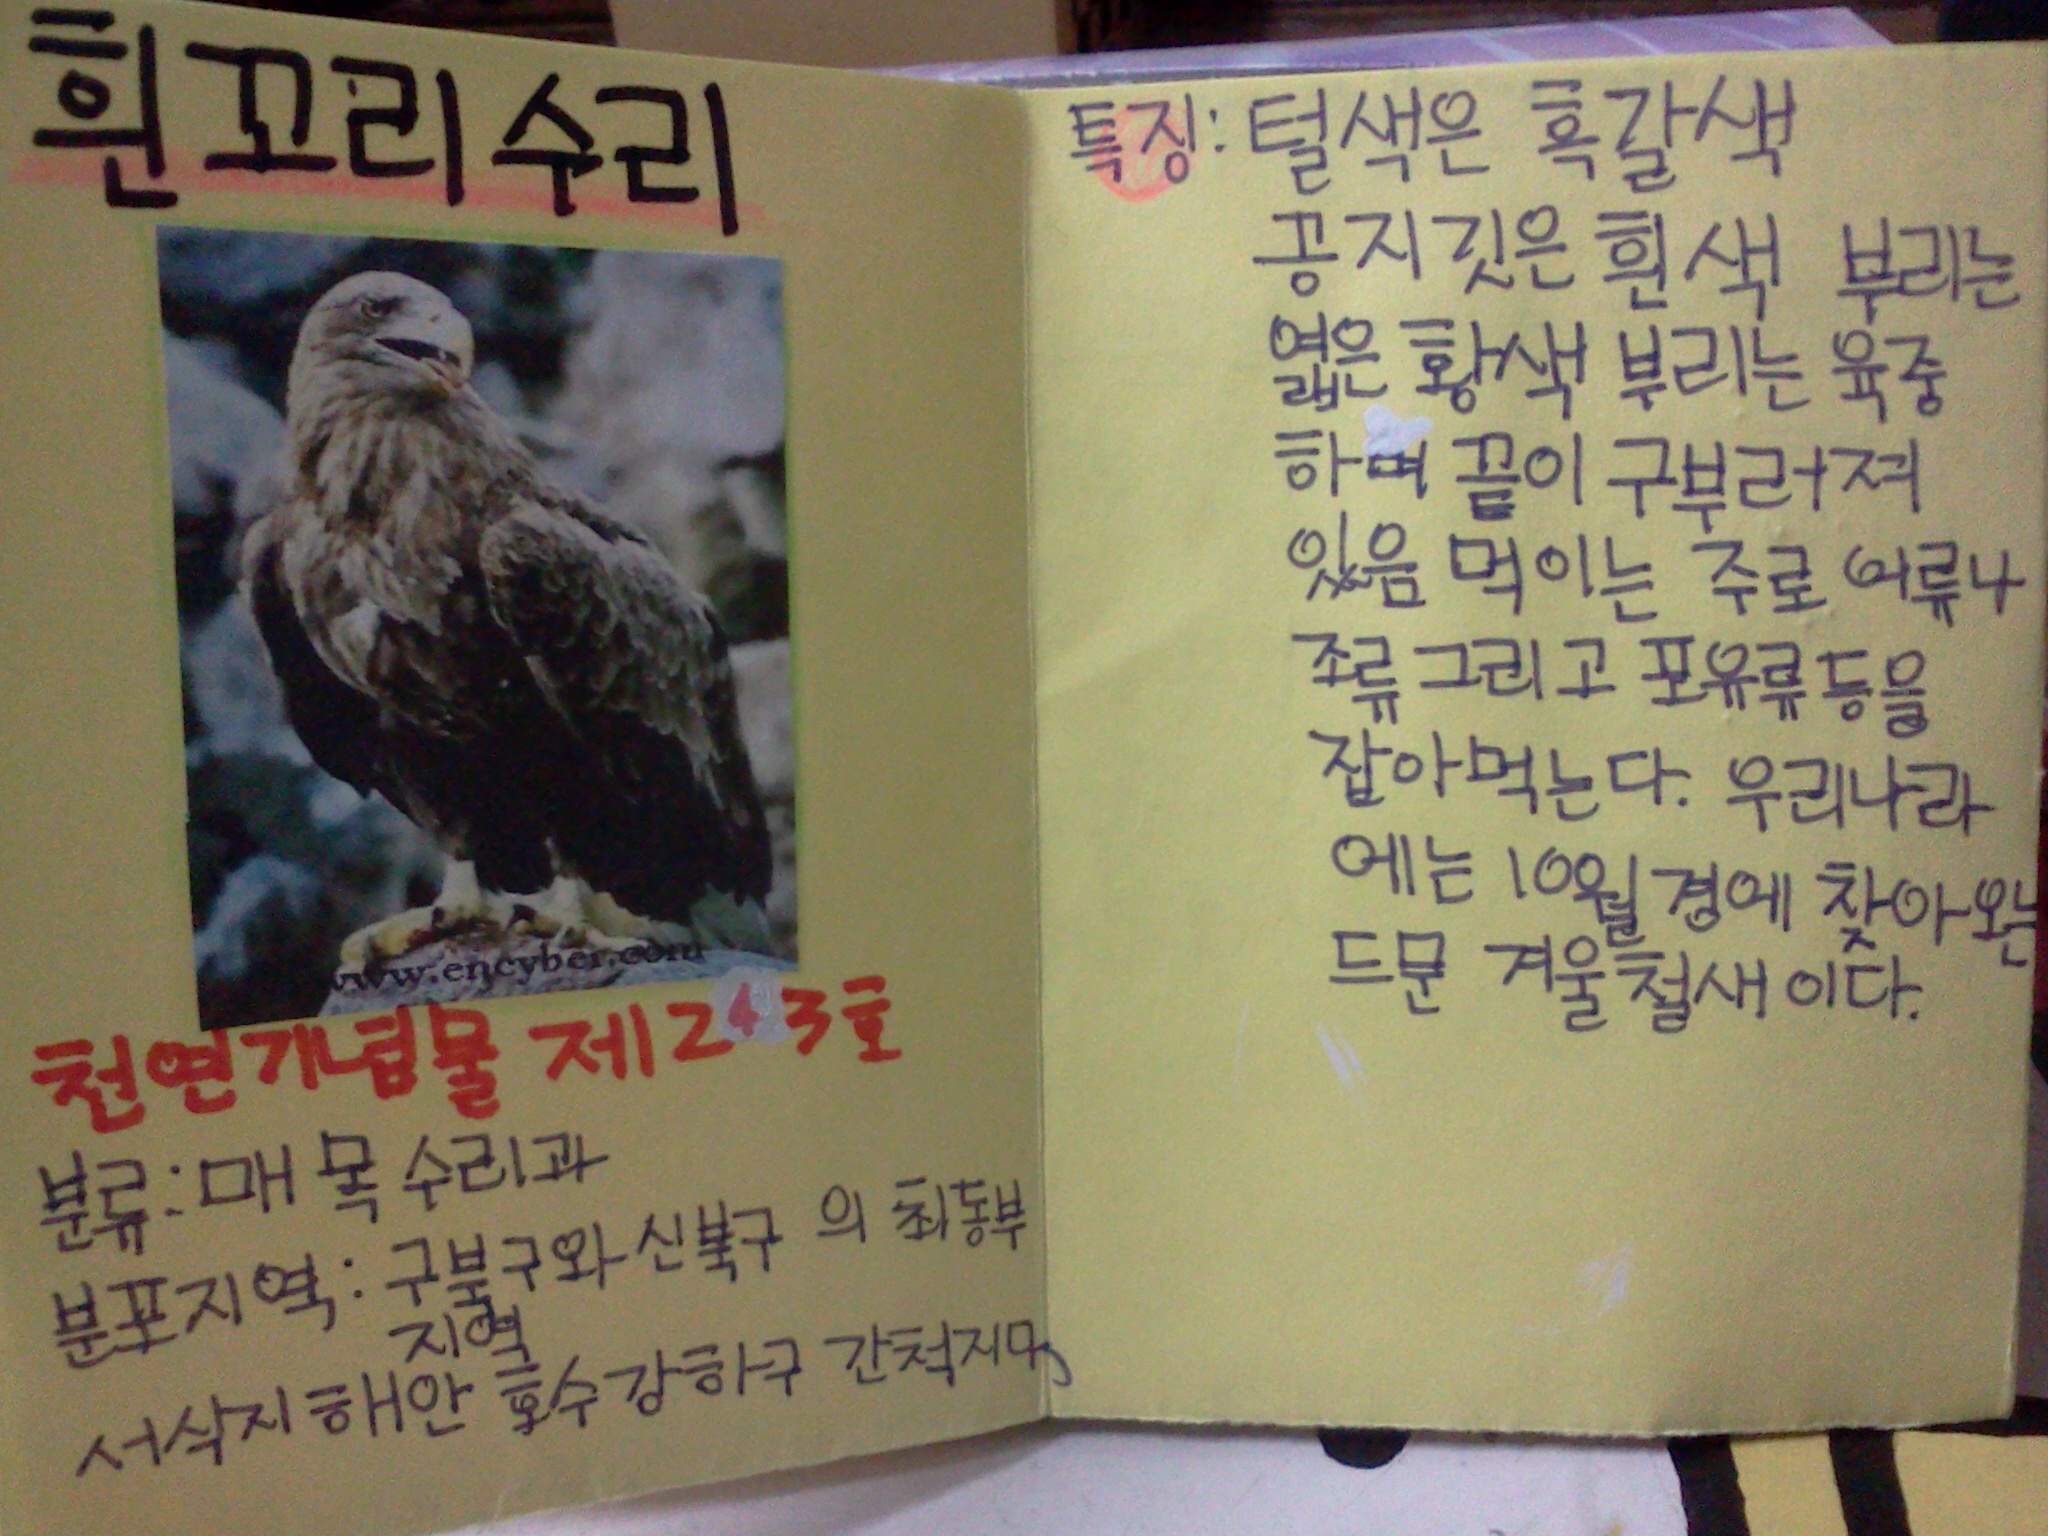 흰꼬리수리
www.encyber.com
천연기념물 제243호
분류: 매목 수리과
분포지역: 구북구와 신북구 의 최동부
지역
서식지 해안 호수 강하구 간척지 등
특징: 털색은 흑갈색
공지깃은 흰색 부리는
엷은 황색 부리는 육중
하며 끝이 구부러져
있음 먹이는 주로 어류나
조류 그리고 포유류 등을
잡아먹는다. 우리나라
에는 10월경에 찾아오는
드문 겨울철새이다.